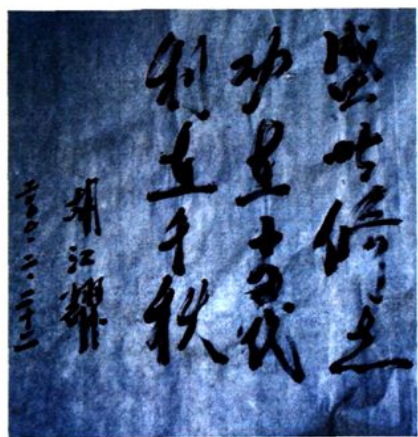 盛世修志
功在当代
利在千秋
胡江耀
二〇〇〇.二.二十二